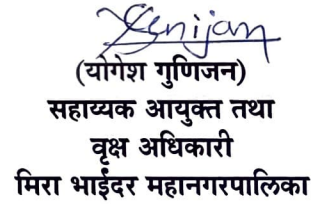 (योगेश गुणिजन)
सहाय्यक आयुक्त तथा
वृक्ष अधिकारी
मिरा भाईंदर महानगरपालिका